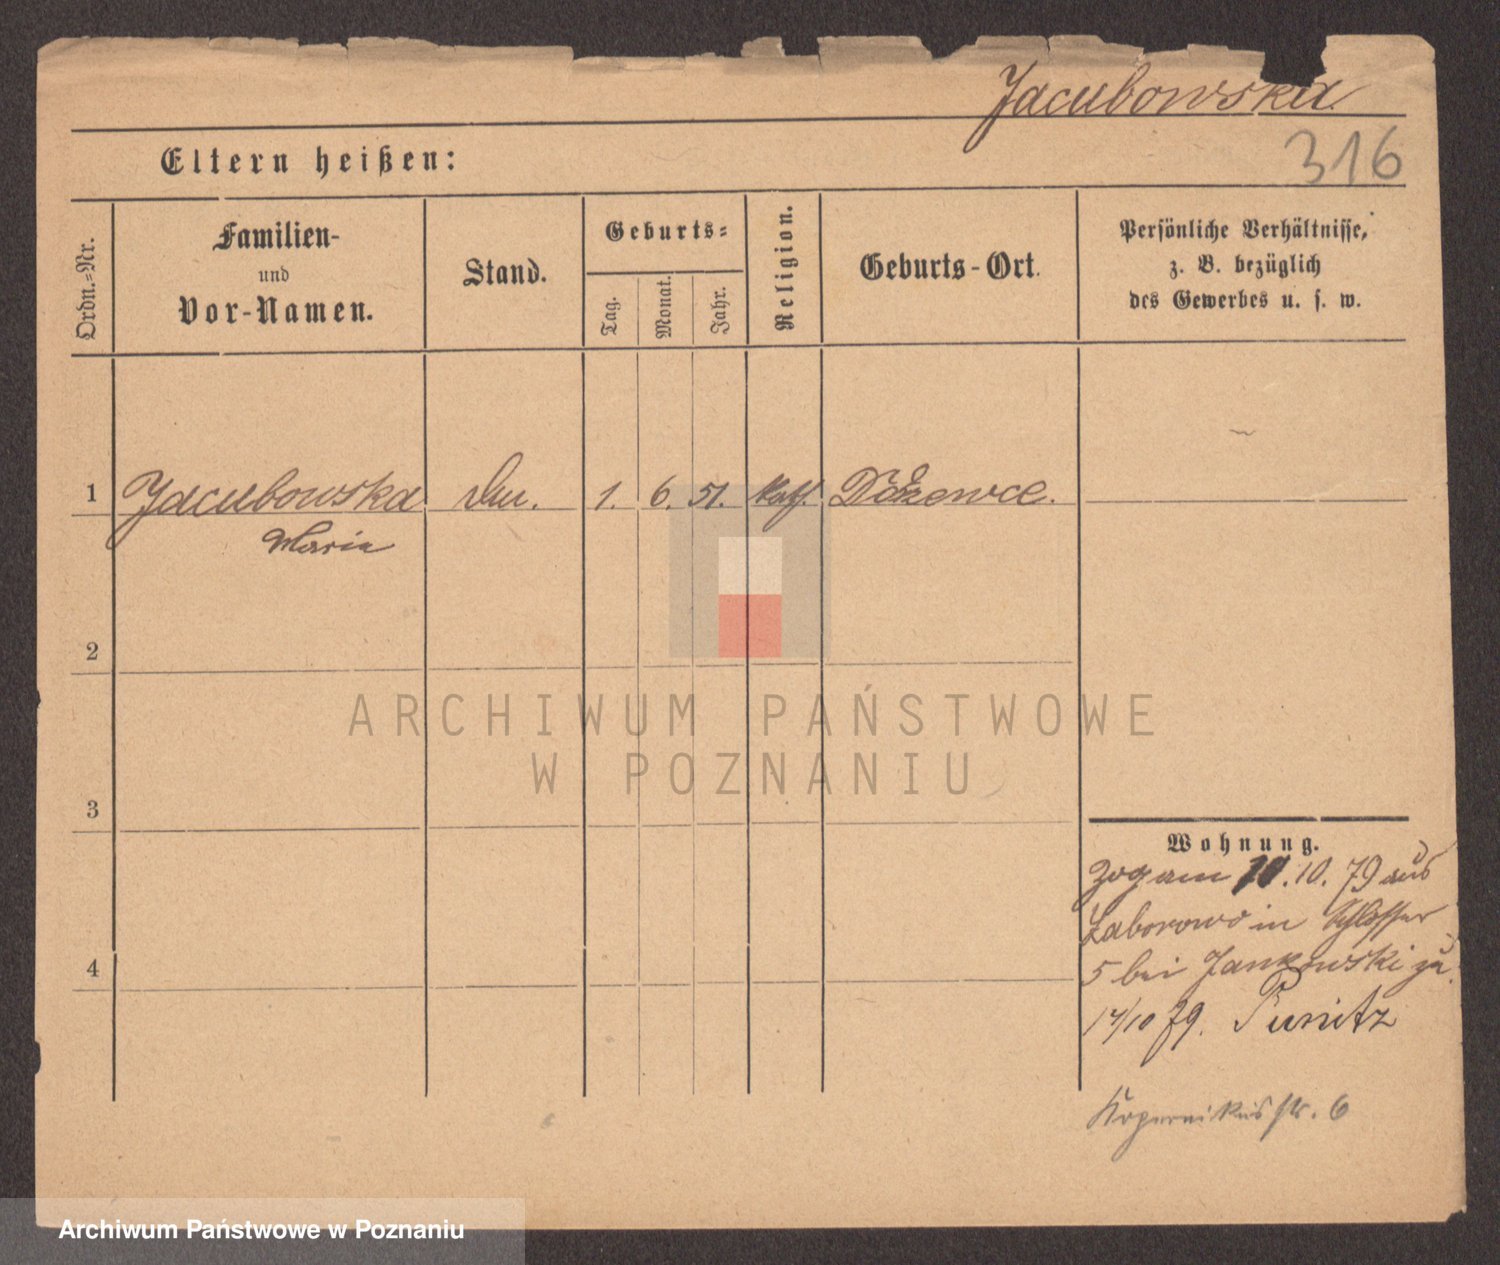 Jacubowska
316
Eltern heißen:
Ordn.-Nr.
Familien-
und
Vor-Namen.
Stand.
Geburts-
Tag.
Monat.
Jahr.
Religion.
Geburts-Ort.
Persönliche Verhältnisse,
z. B. bezüglich
des Gewerbes u. s. w.
1 Jacubowska 1. 6. 51. Kath.
Maria
2
ARCHIWUM PAŃSTWOWE
W POZNANIU
3
Wohnung.
zog am 10. 79 aus
Zaborowo in Schlosser
4
5 bei Jankowski zu
17/10 79. Punitz
Kopernikusstr. 6
Archiwum Państwowe w Poznaniu